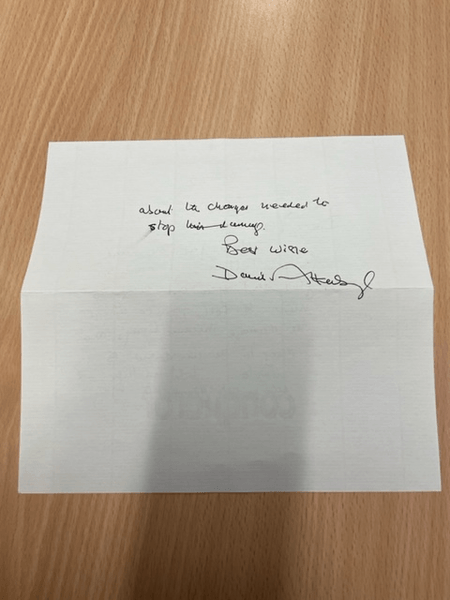 about the changes needed to
stop
Best wishes
David Attenborough